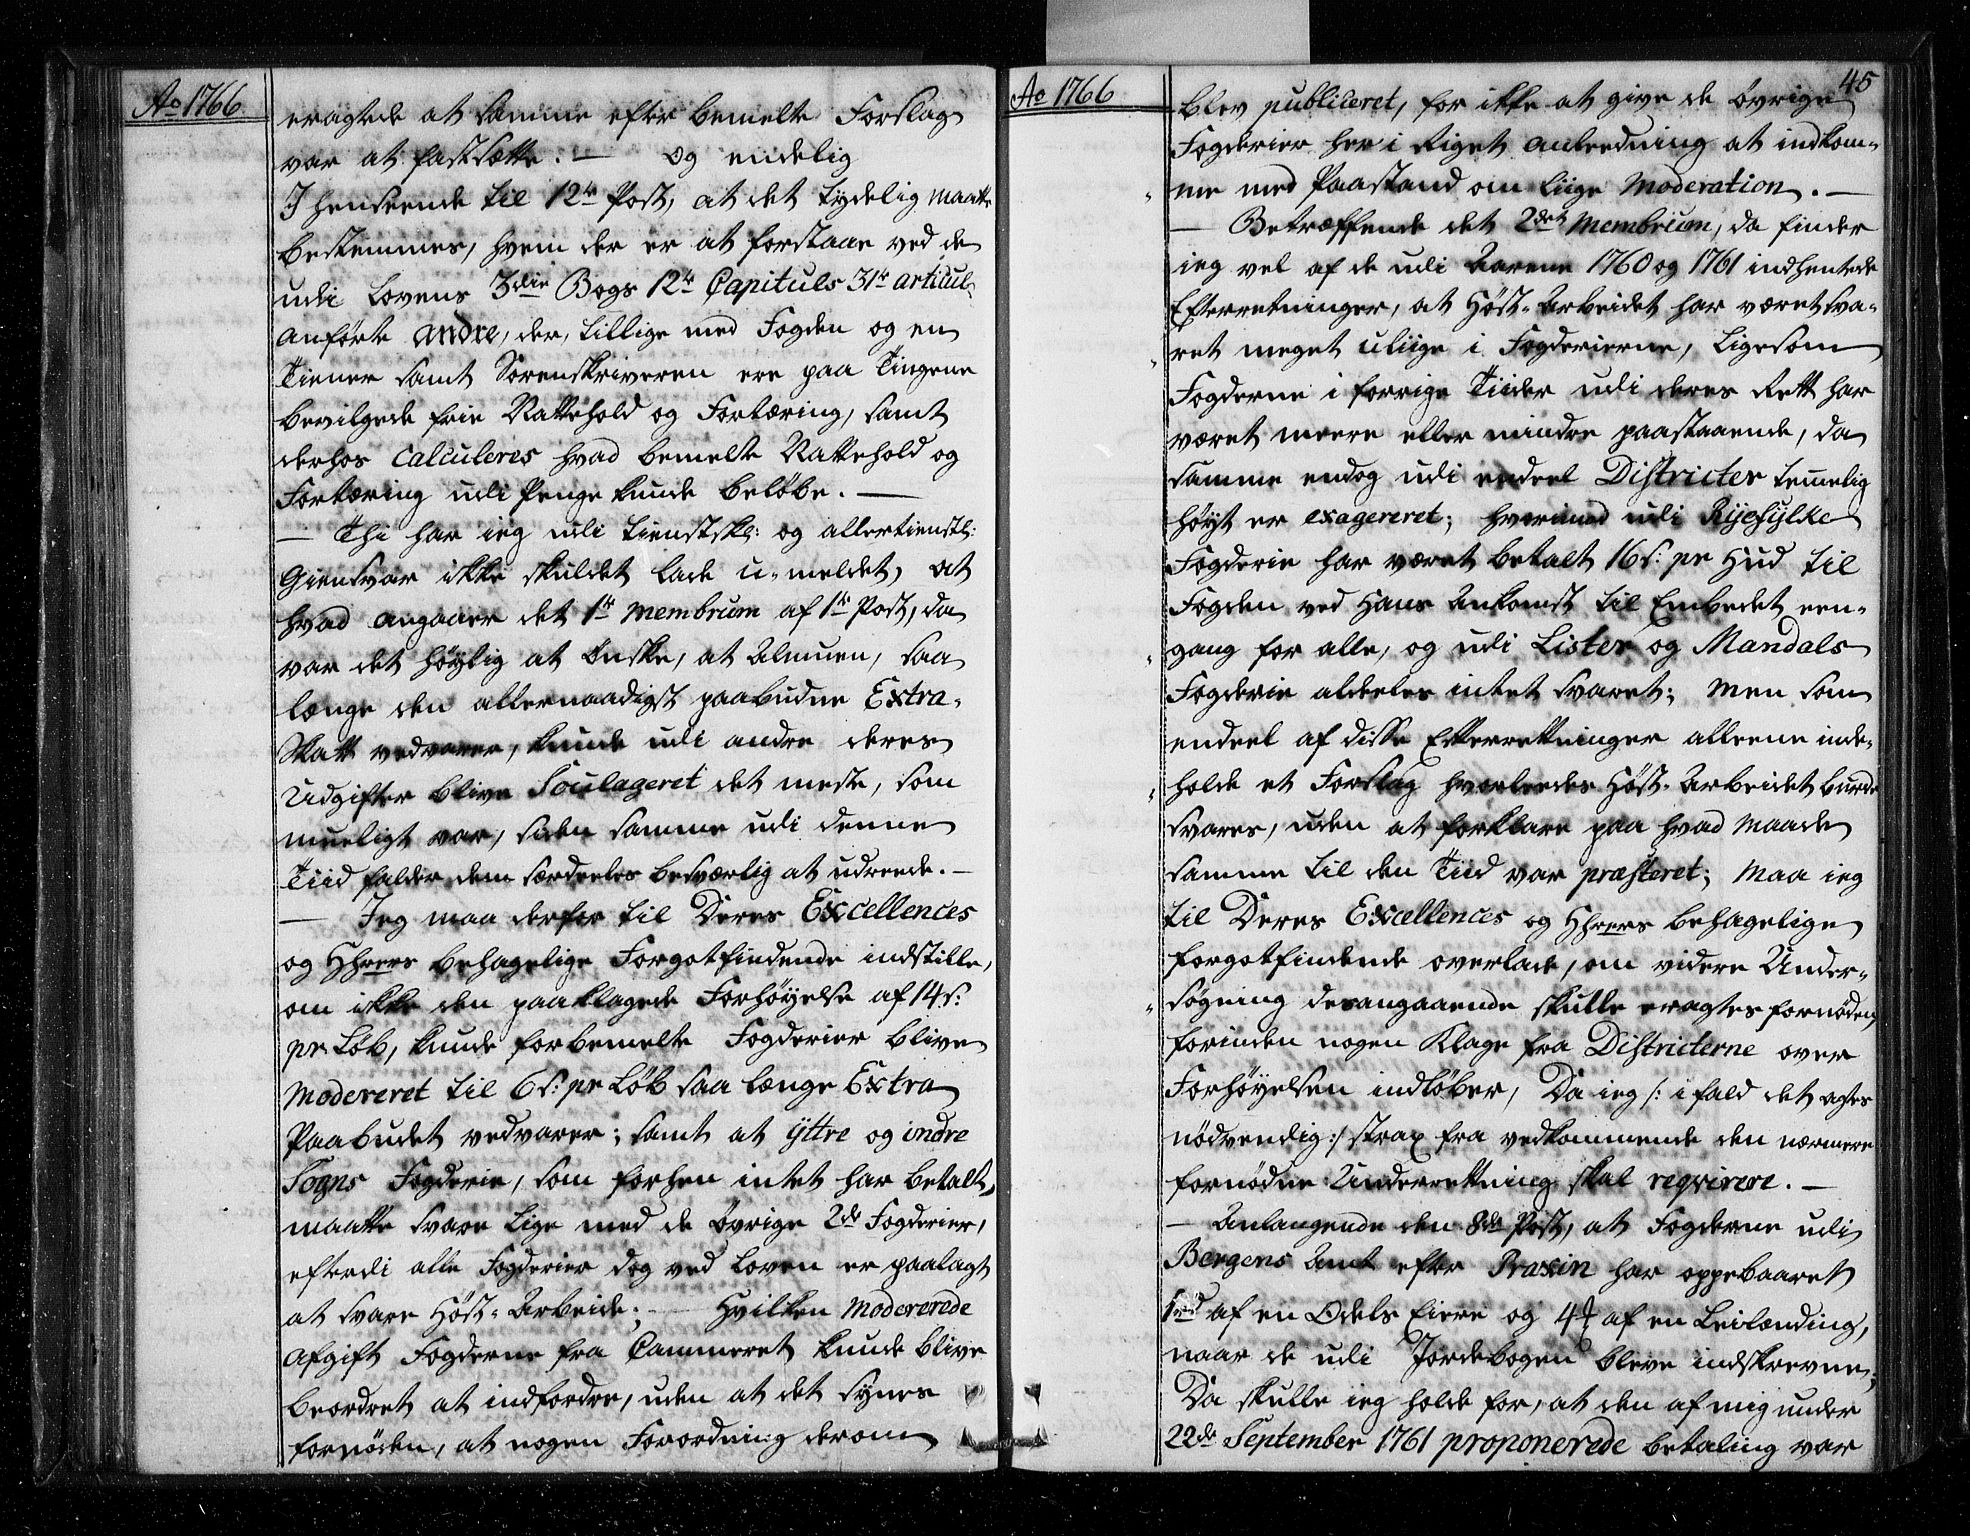 Ao 1766
eragtede at samme efter bemelte Forslag
var at fastsætte. — og endelig
I henseende til 12te Post, at det tydelig maatte
bestemmes, hvem der er at forstaae ved de
udi Lovens 3die Bogs 12te Capituls 31te articul
anførte andre, der, tillige med Fogden og en
Tiener samt Sorenskriveren ere paa Tingene
bevilgede frie Nattehold og Fortæring, samt
derhos calculeres hvad bemelte Nattehold og
Fortæring udi Penge kunde beløbe. —
— Thi har ieg udi tienstskl: og allertienstl:
Giensvar ikke skuldet lade u-meldet, at
hvad angaaer det 1te membrum af 1te Post, da
var det høylig at ønske, at Almuen, saa
længe den allernaadigst paabudne Extra-
Skatt vedvarer, kunde udi andre deres
Udgifter blive Soulageret det meste, som
mueligt var, siden samme udi denne
Tiid falder dem særdeeles besværlig at udreede. —
— Jeg maa derfor til Deres Excellences
og Hhrers behagelige Forgotfindende indstille,
om ikke den paaklagede Forhøyelse af 14 s:
pr Løb, kunde for bemelte Fogderier blive
modereret til 6 s: pr Løb saa længe Extra
Paabudet vedvarer; samt at ÿttre og indre
Sogns Fogderie, som forhen intet har betalt,
maatte svare lige med de øvrige 2de Fogderier,
efterdi alle Fogderier dog ved Loven er paalagt
at svare Høst-Arbeide; — Hvilken modererede
Afgift Fogderne fra Cammeret kunde blive
beordret at indfordre, uden at det synes
fornøden, at nogen Forordning derom
Ao 1766
45
blev publiceret, for ikke at give de øvrige
Fogderier her i Riget anleedning at indkom-
me med Paastand om liige Moderation. —
— Betræffende det 2det Membrum, da finder
ieg vel af de udi Aarene 1760 og 1761 indhentede
Efterretninger, at Høst-Arbeidet har været sva-
ret meget uliige i Fogderierne, ligesom
Fogderne i forrige Tiider udi deres Rett har
været meere eller mindre paastaaende, da
samme endog udi endeel Districter temmelig
høyt er exagereret; hvorimod udi Ryefylke
Fogderie har været betalt 16 s: pr Hud til
Fogden ved Hans Ankomst til Embedet een-
gang for alle, og udi Lister og Mandals
Fogderie aldeeles intet svaret; men som
endeel af disse Efterrettninger alleene inde-
holde et Forslag hvorleedes Høst-Arbeidet burde
svares, uden at forklare paa hvad Maade
samme til den Tiid var præsteret; maa ieg
til Deres Excellences og Hhrers behagelige
forgotfindende overlade, om videre Under-
søgning desangaaende skulle eragtes fornøden,
forinden nogen Klage fra Districterne over
Forhøyelsen indløber, Da ieg /: i fald det agtes
nödvendig:/ strax fra vedkommende den nærmere
fornødne Underrettning skal reqvirere. —
— Anlangende den 8de Post, at Fogderne udi
Bergens Amt efter Praxin har oppebaaret
af en Odels Eiere og af en Leilænding,
naar de udi Jordebogen bleve indskrevne;
Da skulle ieg holde for, at den af mig under
22de September 1761 proponerede betaling var